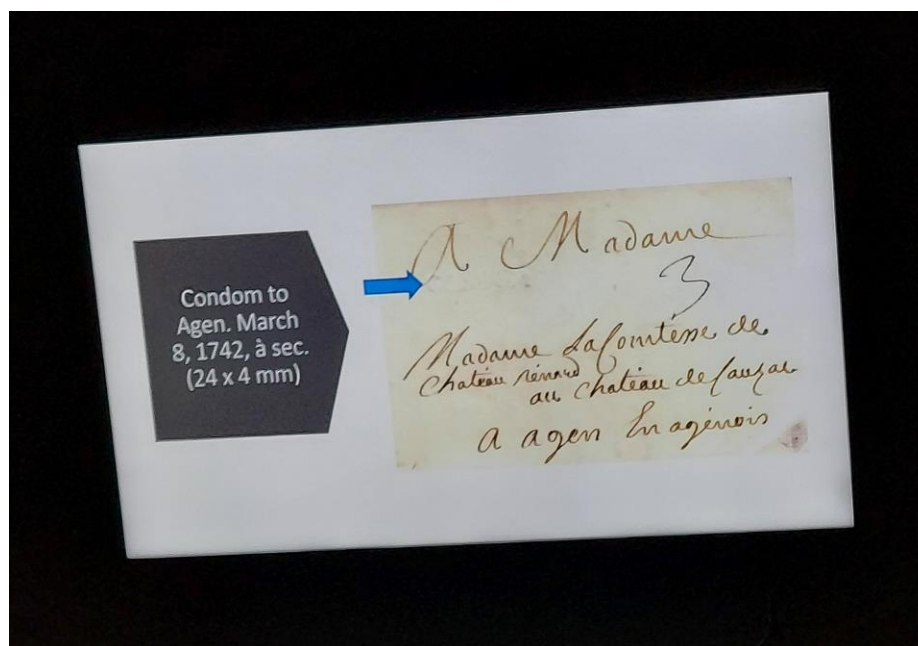 Condom to
Agen. March
8, 1742, à sec.
(24 x 4 mm)
A Madame
3
Madame La Comtesse de
Chateau rénard
au chateau de Cauzac
A agen En agénois